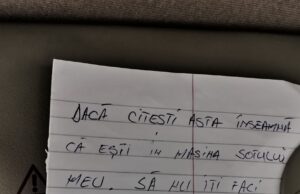 DACĂ CITEȘTI ASTA ÎNSEAMNĂ
CĂ EȘTI ÎN MAȘINA SOȚULUI
MEU. SĂ NU ÎȚI FACI